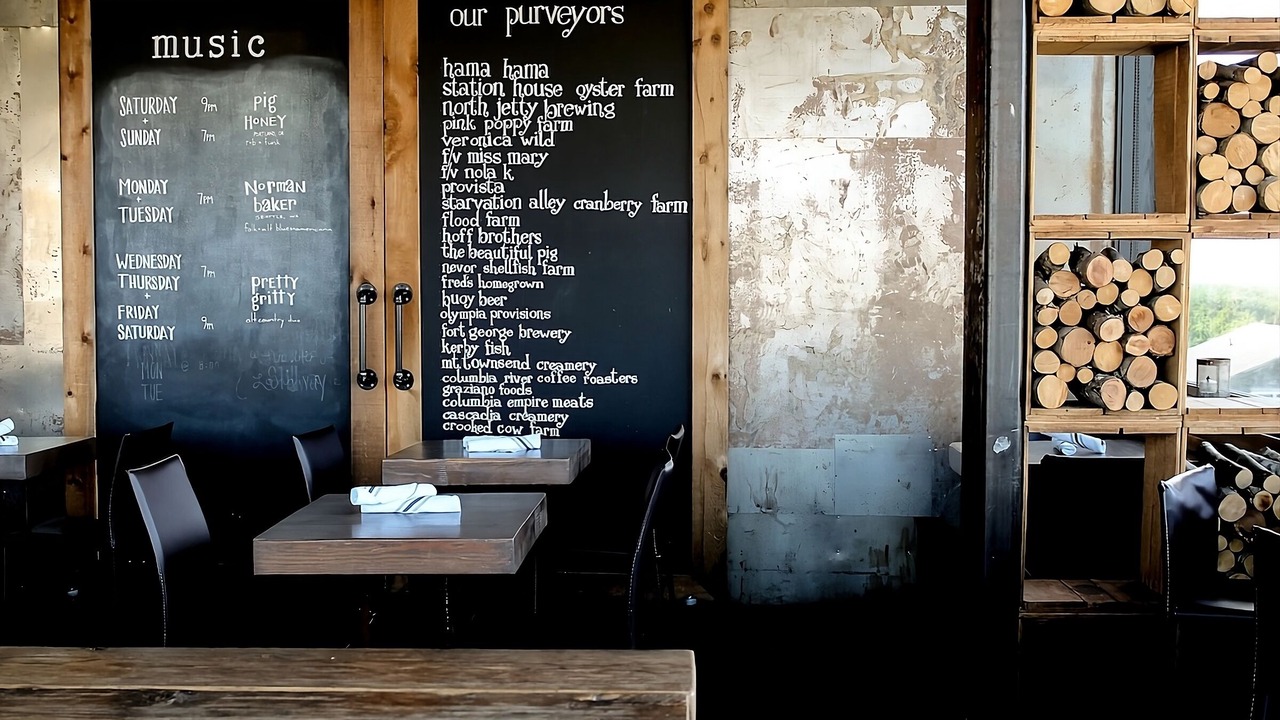 music
SATURDAY 9pm pig
+ HONEY
SUNDAY 7pm PORTLAND, OR
r&b + funk
MONDAY NORMAN
+ 7pm baker
TUESDAY SEATTLE, WA
folk + alt blues
WEDNESDAY
THURSDAY 7pm pretty
+ gritty
FRIDAY
SATURDAY 9pm alt country duo
MON
TUE
our purveyors
hama hama
station house oyster farm
north jetty brewing
pink poppy farm
veronica wild
f/v miss mary
f/v nola k
provista
starvation alley cranberry farm
flood farm
hoff brothers
the beautiful pig
nevor shellfish farm
fred's homegrown
buoy beer
olympia provisions
fort george brewery
kerby fish
mt townsend creamery
columbia river coffee roasters
graziano foods
columbia empire meats
cascadia creamery
crooked cow farm